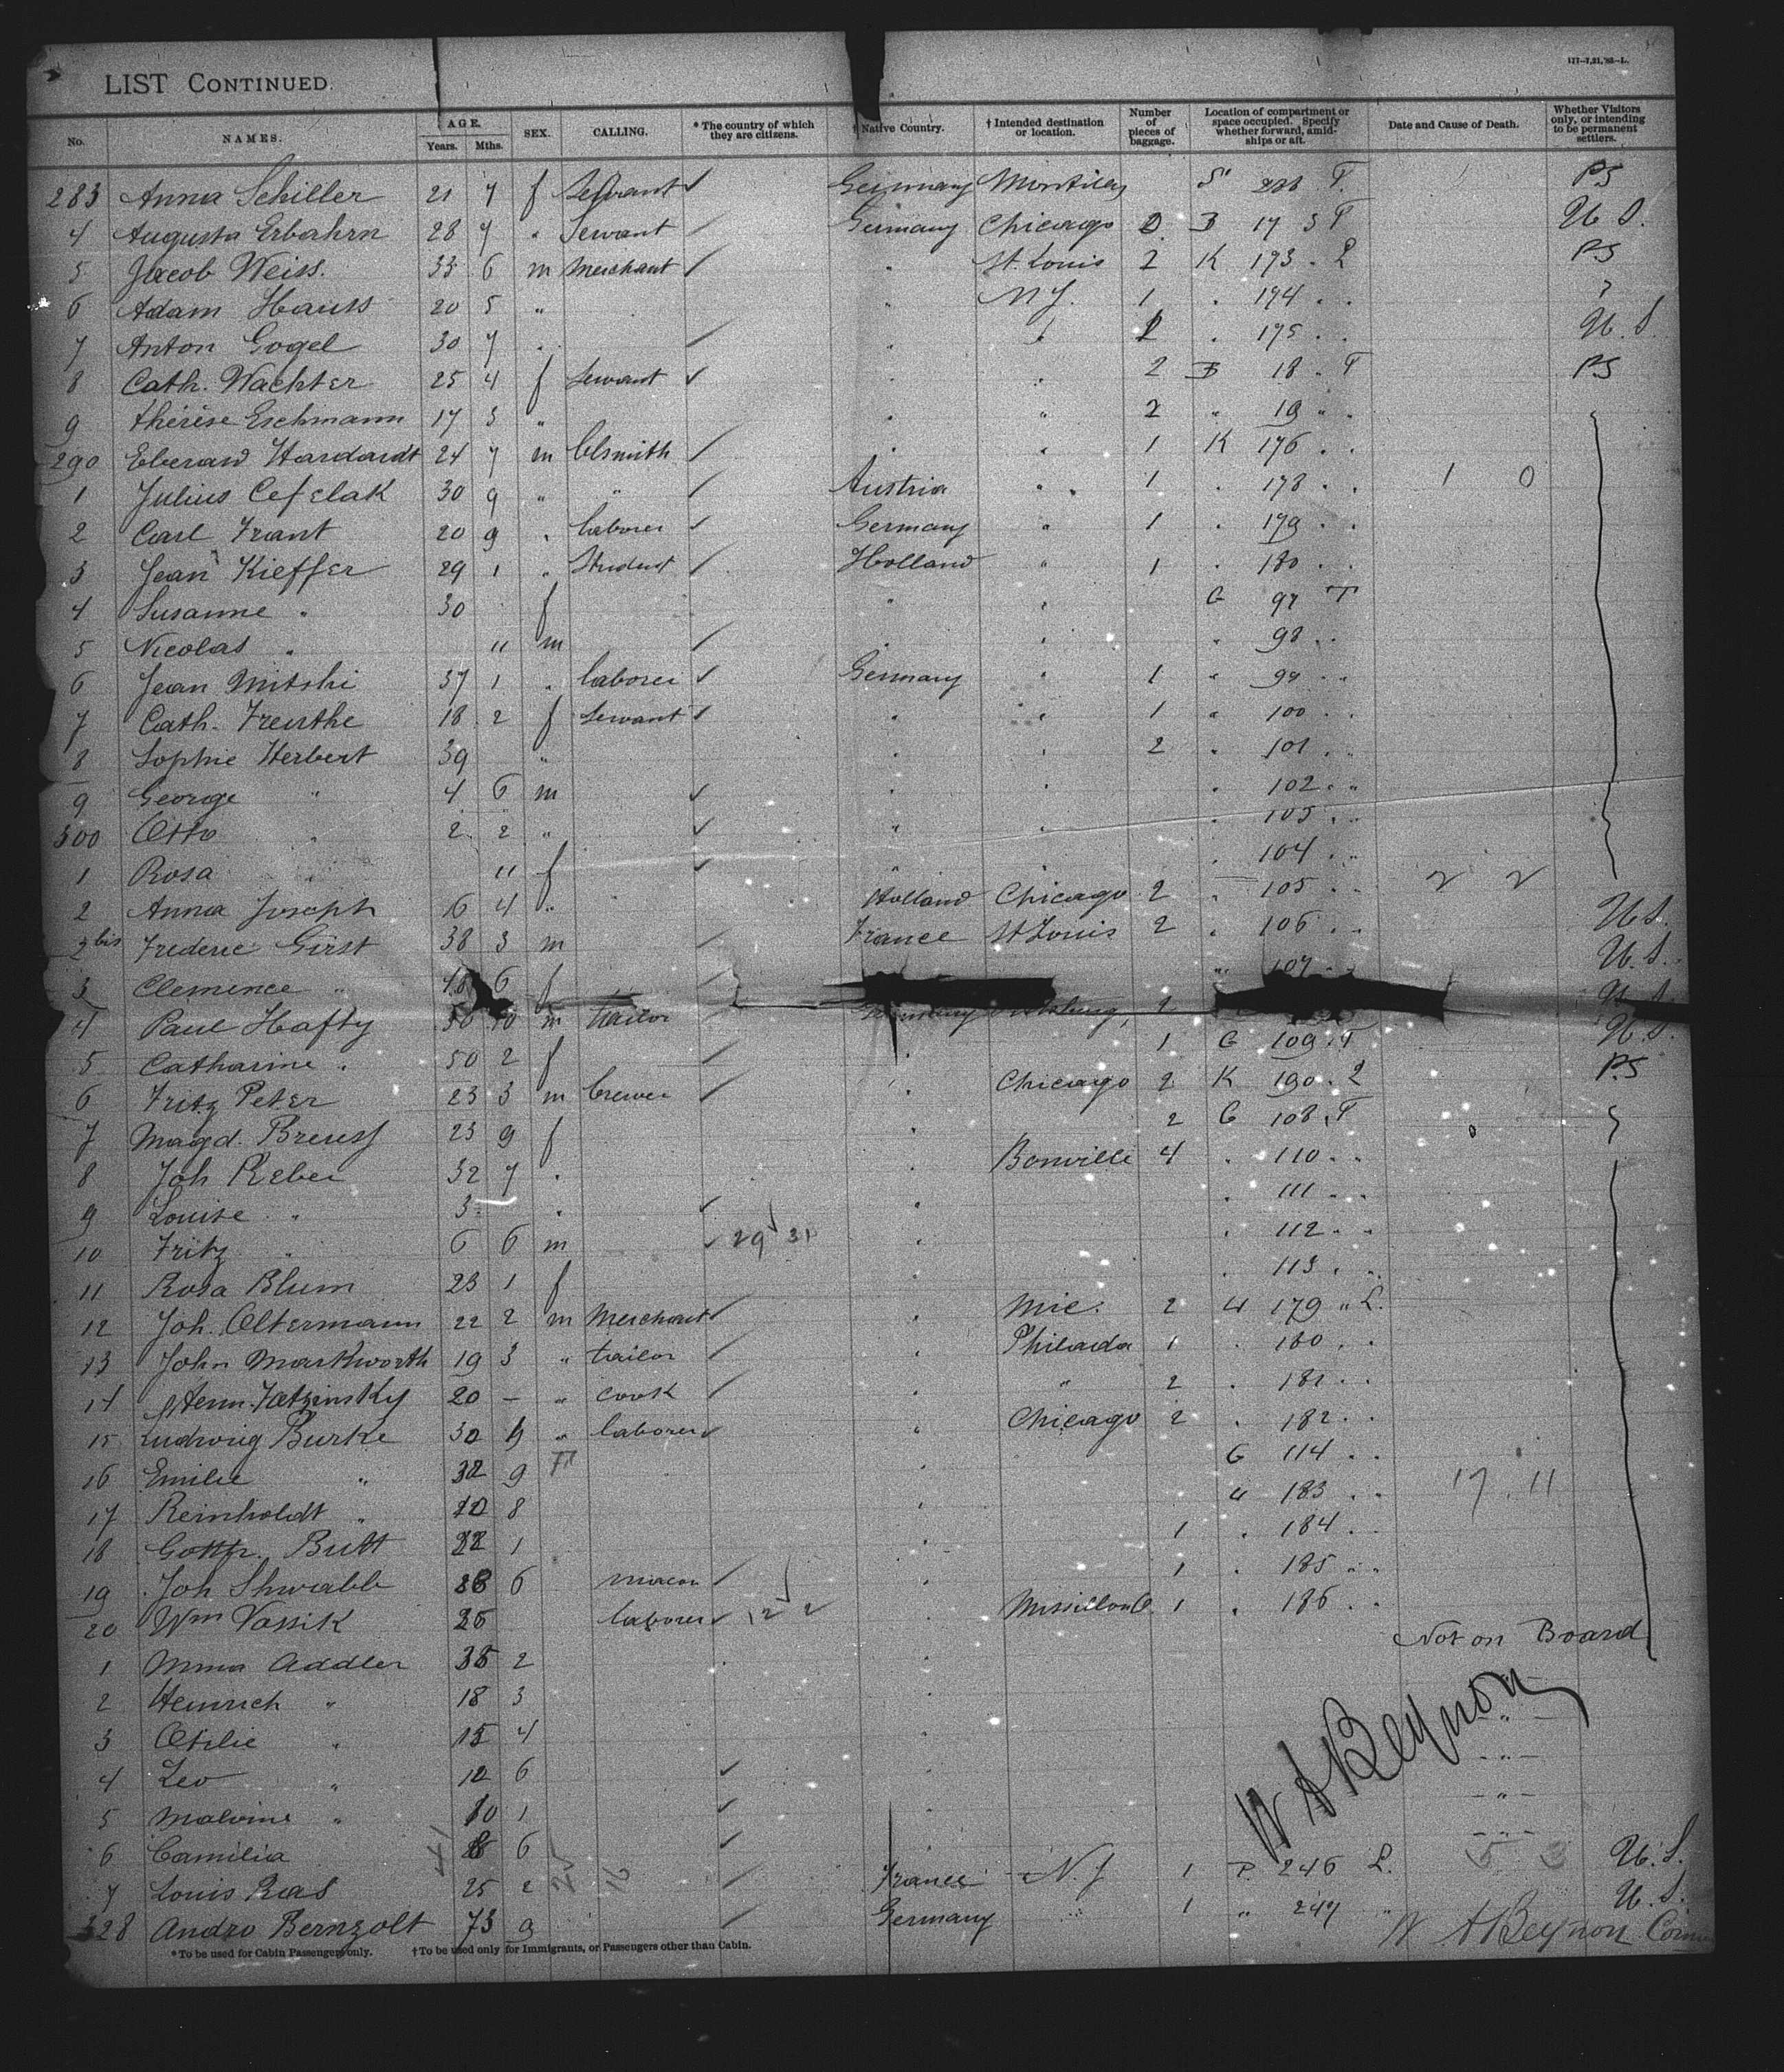 LIST CONTINUED.
No. NAMES. AGE. Years. Mths. SEX. CALLING. * The country of which they are citizens. † Native Country. † Intended destination or location. Number of pieces of baggage. Location of compartment or space occupied. Specify whether forward, amidships or aft. Date and Cause of Death. Whether Visitors only, or intending to be permanent settlers.
283 Anna Schiller 21 7 f Servant ✓ Germany S T. PS
4 Augusta Erbahrn 28 7 " Servant ✓ Germany Chicago B 17 T U. S.
5 Jacob Weiss. 33 6 m Merchant ✓ " St. Louis 2 K 173 " L PS
6 Adam Hauss 20 5 " " N Y. 1 " 174 " "
7 Anton Gogel 30 7 " ✓ " " " 175 " " U. S.
8 Cath. Wachter 25 4 f Servant ✓ " " 2 B 18 " T PS
9 Therese Eschmann 17 3 " " " 2 " 19 " "
290 Eberard Hardardt 24 7 m Clsmith ✓ " " 1 K 176 " "
1 Julius Cefelak 30 9 " " ✓ Austria " " 1 " 178 " " 1 0
2 Carl Frant 20 9 " laborer ✓ Germany " 1 " 179 " "
3 Jean Kieffer 29 1 " Student ✓ Holland " 1 " 180 " "
4 Susanne " 30 f " " C 97 T
5 Nicolas " 11 m ✓ " " " 98 " "
6 Jean Mitski 37 1 " laborer ✓ Germany " 1 " 99 " "
7 Cath. Freuthe 18 2 f Servant ✓ " " 1 " 100 " "
8 Sophie Herbert 39 " " " 2 " 101 " "
9 George " 4 6 m ✓ " " " 102 " "
300 Otto " 2 2 " ✓ " " " 103 " "
1 Rosa " 11 f ✓ " " " 104 " "
2 Anna Joseph 16 4 " " Holland Chicago 2 " 105 " " 2 2
2 bis Frederic Girst 38 3 m ✓ France St Louis 2 " 106 " " U. S.
3 Clemence " 6 f ✓ " 107 " " U. S.
4 Paul Hafty 50 10 m tailor ✓ Germany 2 U. S.
5 Catharine " 50 2 f ✓ " 1 C 109 " T U. S.
6 Fritz Peter 23 3 m brewer ✓ " Chicago 2 K 190 " L P.S
7 Magd. Breuss 23 9 f " 2 C 108 " T
8 Joh Reber 32 7 " " Bonville 4 " 110 " "
9 Louise " 3 " ✓ " " 111 " "
10 Fritz " 6 6 m ✓ 29 31 " " 112 " "
11 Rosa Blum 23 1 f " " 113 " "
12 Joh. Oltermann 22 2 m Merchant ✓ " Mie. 2 U 179 " L.
13 John Markworth 19 3 " tailor ✓ " Philada 1 " 180 " "
14 20 – " cook ✓ " " 2 " 181 " "
15 Ludwig Burke 30 9 " laborer ✓ " Chicago 2 " 182 " "
16 Emilie " 32 9 " C 114 " "
17 Reinholdt " 10 8 " U 183 " " 17 11
18 Gottfr. Butt 22 1 " 1 " 184 " "
19 Joh Shwabb 28 6 mason ✓ " 1 " 185 " "
20 Wm Vassik 25 laborer ✓ 12 2 " Massillon O. 1 " 186 " "
Not on Board
1 Mina Addler 35 2 "
2 Heinrich " 18 3 "
3 Otilie " 15 4 "
4 Leo " 12 6 ✓
5 Malvine " 10 1 ✓ "
W A Beynon
6 Camilia 8 6 ✓
7 Louis Reas 25 2 ✓ France N. Y 1 P 246 L. 5 3 U. S.
328 Andro Bernzolt 73 9 ✓ Germany " 1 " 247 " U. S.
W A Beynon
* To be used for Cabin Passengers only. † To be used only for Immigrants, or Passengers other than Cabin.